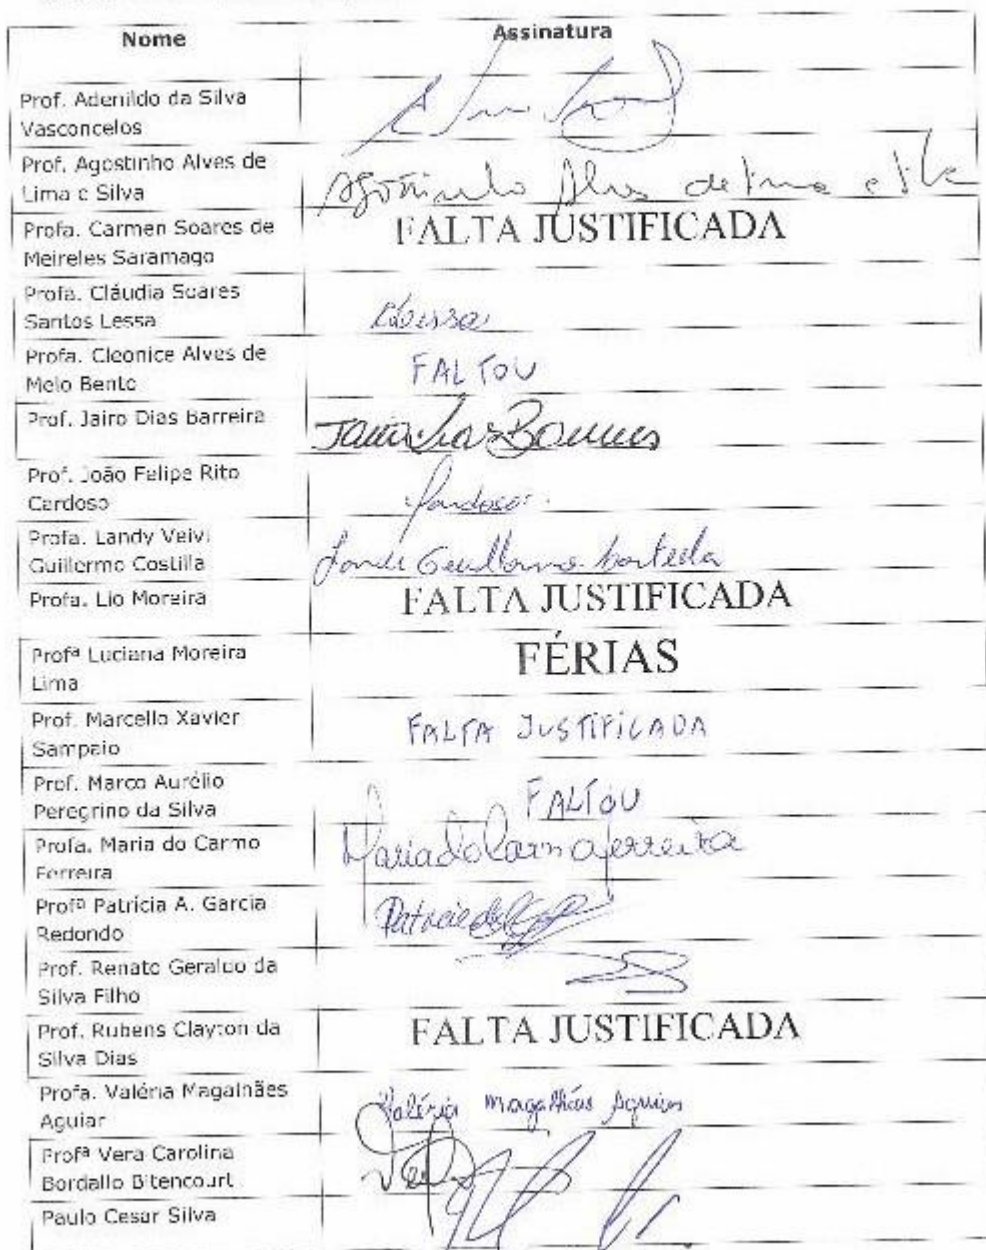 Nome Assinatura
Prof. Adenildo da Silva
Vasconcelos
Prof. Agostinho Alves de
Lima e Silva
Agostinho Alves de Lima e Silva
Profa. Carmen Soares de
Meireles Saramago
FALTA JUSTIFICADA
Profa. Cláudia Soares
Santos Lessa
CLessa
Profa. Cleonice Alves de
Melo Bento
FALTOU
Prof. Jairo Dias Barreira
Prof. João Felipe Rito
Cardoso
Cardoso
Profa. Landy Veivi
Guillermo Costilla
Profa. Lio Moreira
FALTA JUSTIFICADA
Profª Luciana Moreira
Lima
FÉRIAS
Prof. Marcello Xavier
Sampaio
FALTA JUSTIFICADA
Prof. Marco Aurélio
Peregrino da Silva
FALTOU
Profa. Maria do Carmo
Ferreira
Maria do Carmo Ferreira
Profª Patrícia A. Garcia
Redondo
Prof. Renato Geraldo da
Silva Filho
Prof. Rubens Clayton da
Silva Dias
FALTA JUSTIFICADA
Profa. Valéria Magalhães
Aguiar
Valéria Magalhães Aguiar
Profª Vera Carolina
Bordallo Bitencourt
Paulo Cesar Silva